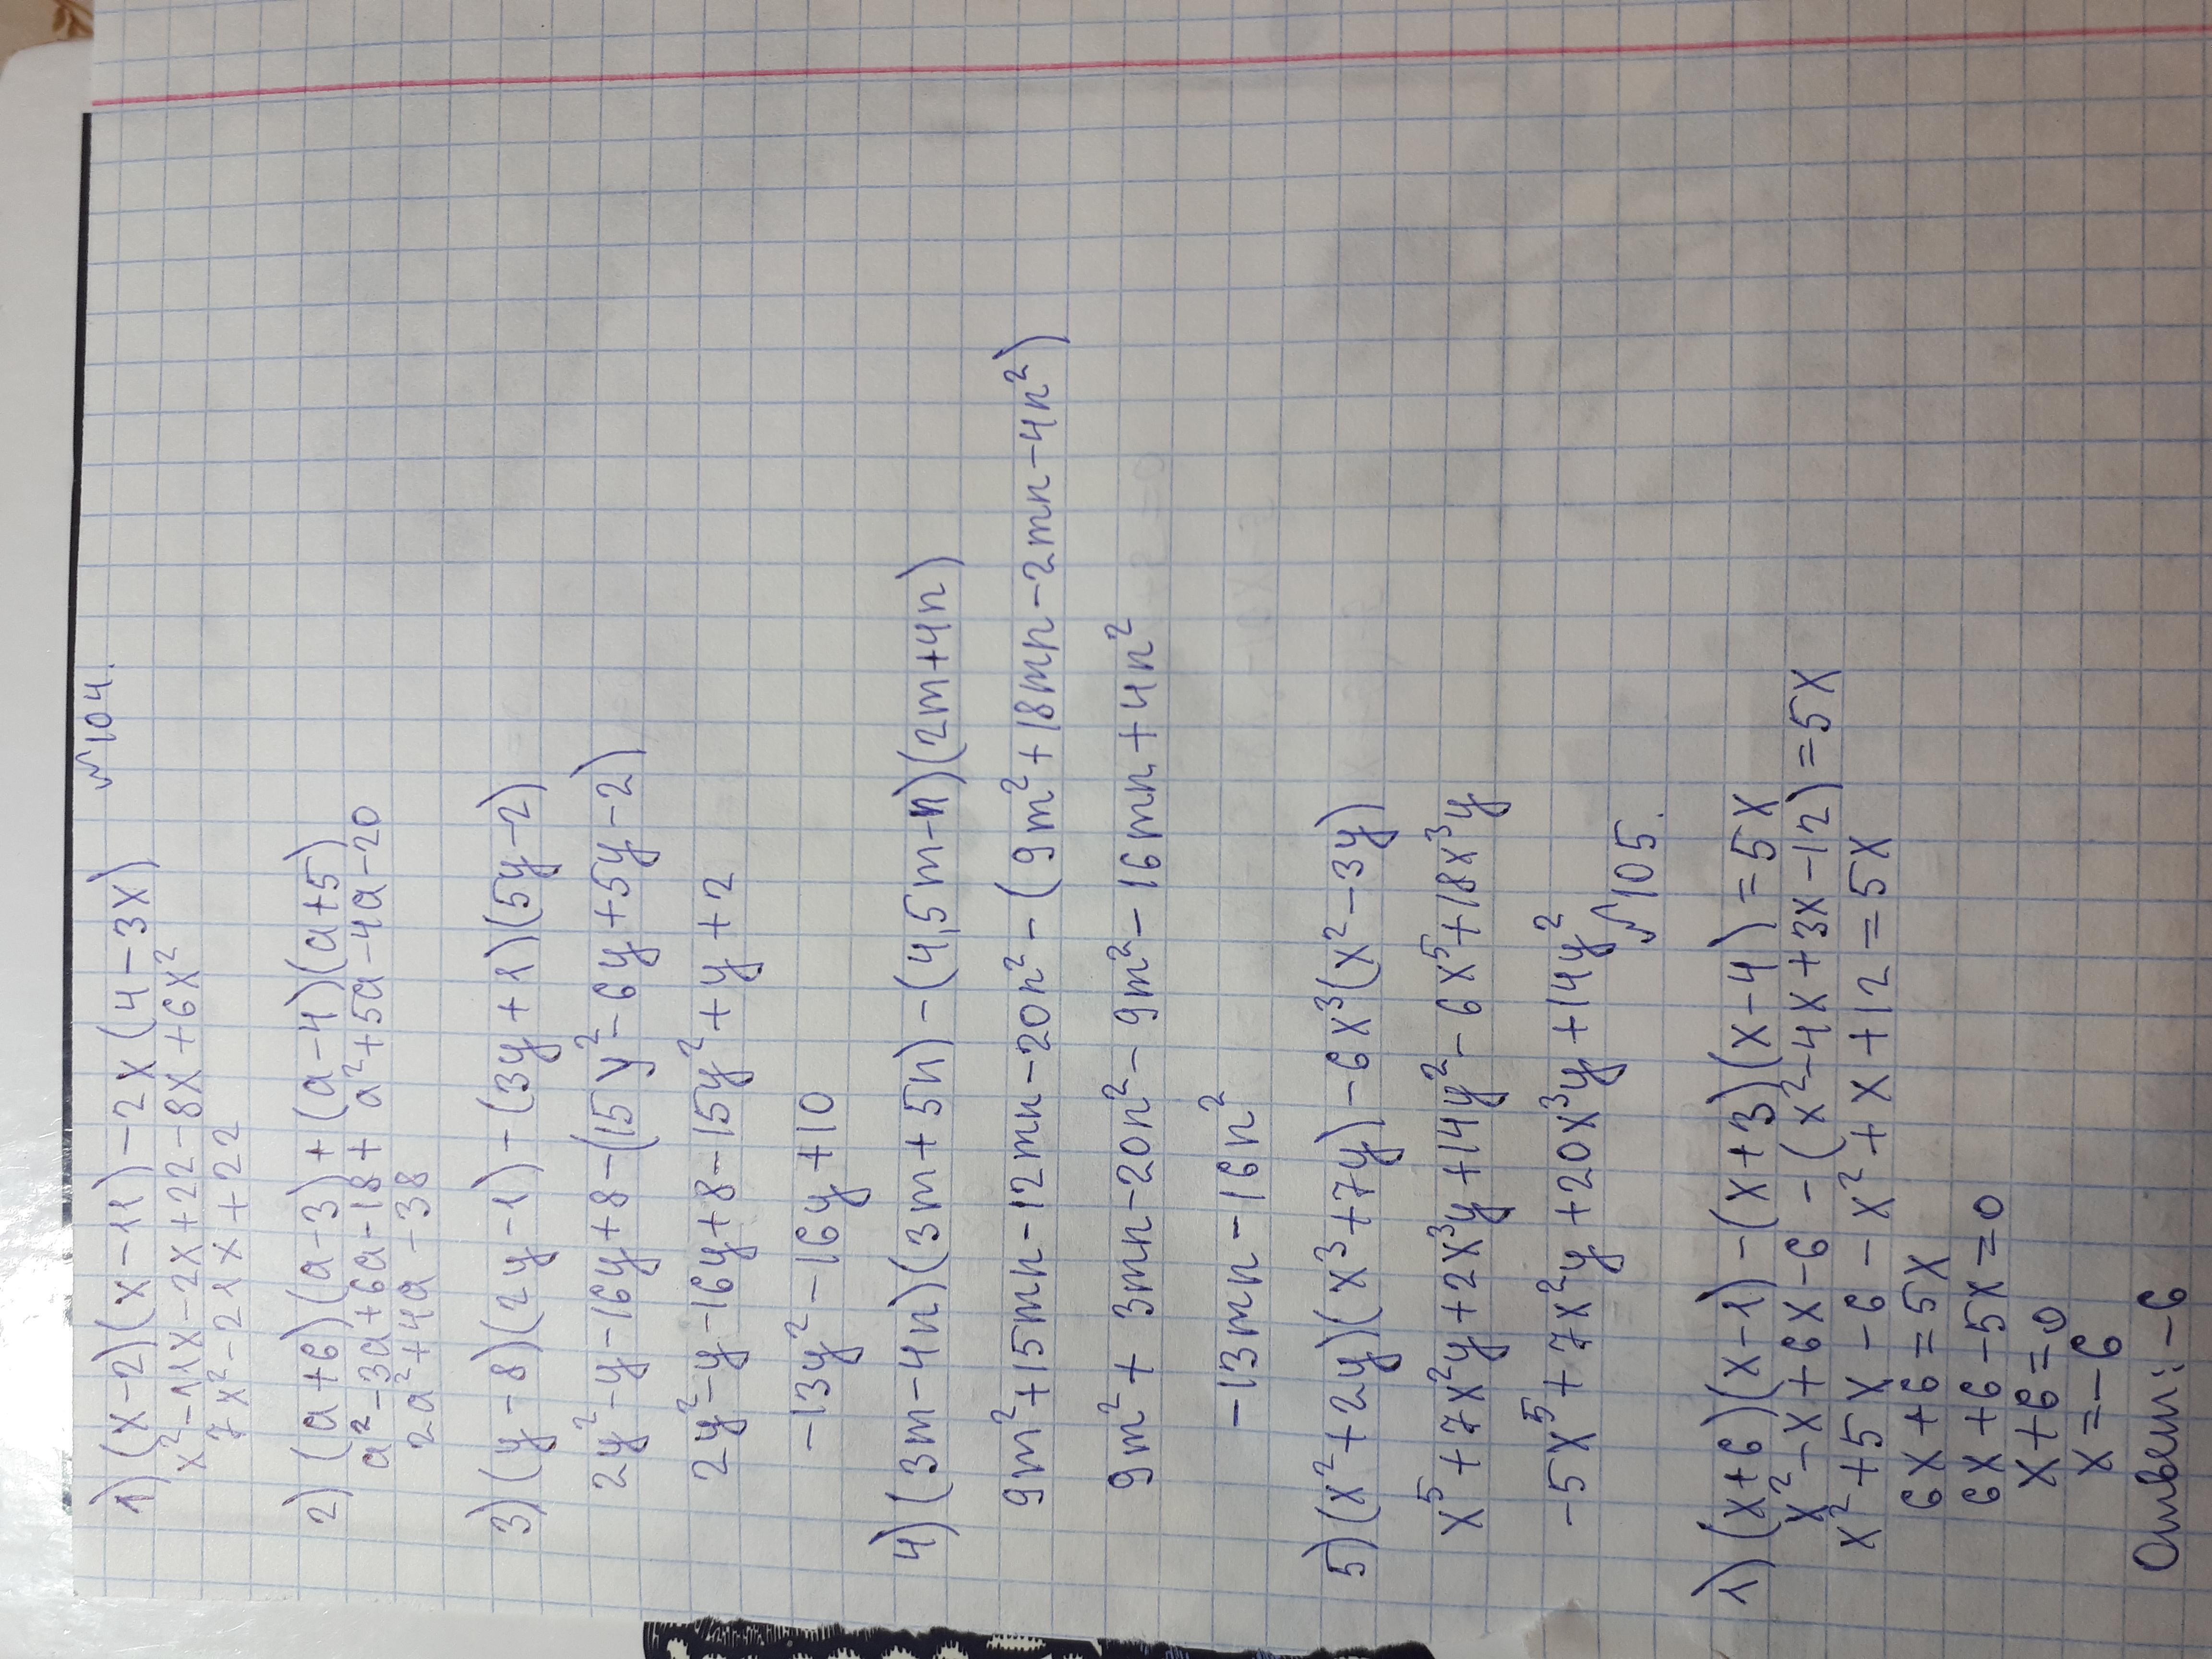 №104.
1) (x-2)(x-11)-2x(4-3x)
x²-11x-2x+22-8x+6x²
7x²-21x+22
2) (a+6)(a-3)+(a-4)(a+5)
a²-3a+6a-18+a²+5a-4a-20
2a²+4a-38
3) (y-8)(2y-1)-(3y+1)(5y-2)
2y²-y-16y+8-(15y²-6y+5y-2)
2y²-y-16y+8-15y²+y+2
-13y²-16y+10
4) (3m-4n)(3m+5n)-(4,5m-n)(2m+4n)
9m²+15mn-12mn-20n²-(9m²+18mn-2mn-4n²)
9m²+3mn-20n²-9m²-16mn+4n²
-13mn-16n²
5) (x²+2y)(x³+7y)-6x³(x²-3y)
x⁵+7x²y+2x³y+14y²-6x⁵+18x³y
-5x⁵+7x²y+20x³y+14y²
№105.
1) (x+6)(x-1)-(x+3)(x-4)=5x
x²-x+6x-6-(x²-4x+3x-12)=5x
x²+5x-6-x²+x+12=5x
6x+6=5x
6x+6-5x=0
x+6=0
x=-6
Ответ: -6